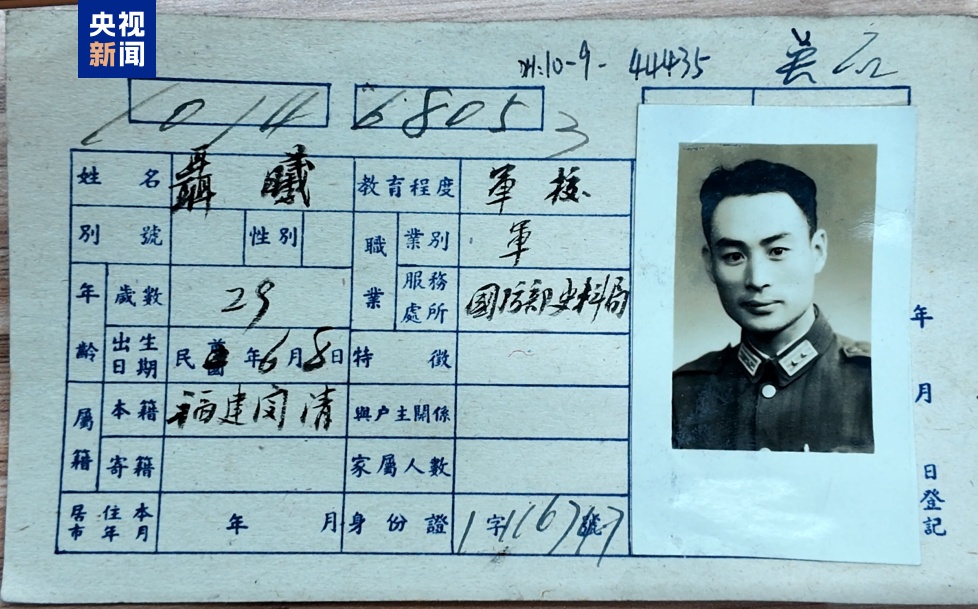 央视
新闻
10-9-44435
1014 68053
姓名 聶曦 教育程度 軍校
別號 性別 職業 業別 軍
年齡 歲數 29 服務處所 國防部史料局
出生日期 民國 年6月8日 特徵
屬籍 本籍 福建闽清 與戶主關係
寄籍 家屬人數
居住本市年月 年 月 身份證 字 號
年 月 日登記